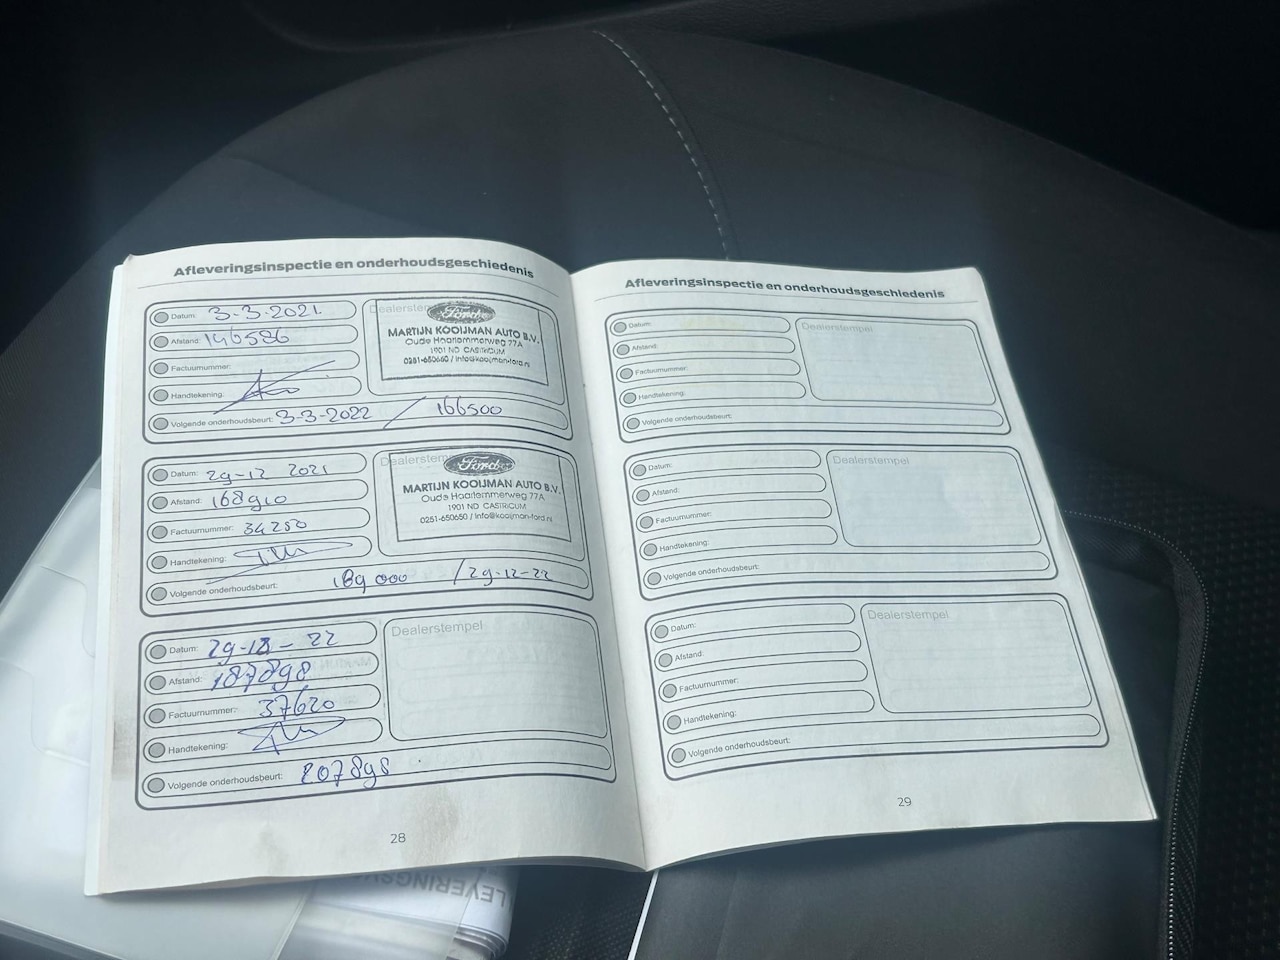 Afleveringsinspectie en onderhoudsgeschiedenis
Datum: 3-3-2021
Afstand: 146586
Factuurnummer:
Handtekening:
Volgende onderhoudsbeurt: 3-3-2022 / 166500
Dealerstem
Ford
MARTIJN KOOIJMAN AUTO B.V.
Oude Haarlemmerweg 77A
1901 ND CASTRICUM
0251-650650 / info@kooijman-ford.nl
Datum: 29-12 2021
Afstand: 168910
Factuurnummer: 34250
Handtekening:
Volgende onderhoudsbeurt: 189000 / 29-12-22
Dealerstem
Ford
MARTIJN KOOIJMAN AUTO B.V.
Oude Haarlemmerweg 77A
1901 ND CASTRICUM
0251-650650 / info@kooijman-ford.nl
Datum: 29-12-22
Afstand: 187898
Factuurnummer: 37620
Handtekening:
Volgende onderhoudsbeurt: 207898
Dealerstempel
28
Afleveringsinspectie en onderhoudsgeschiedenis
Datum:
Afstand:
Factuurnummer:
Handtekening:
Volgende onderhoudsbeurt:
Dealerstempel
Datum:
Afstand:
Factuurnummer:
Handtekening:
Volgende onderhoudsbeurt:
Dealerstempel
Datum:
Afstand:
Factuurnummer:
Handtekening:
Volgende onderhoudsbeurt:
Dealerstempel
29